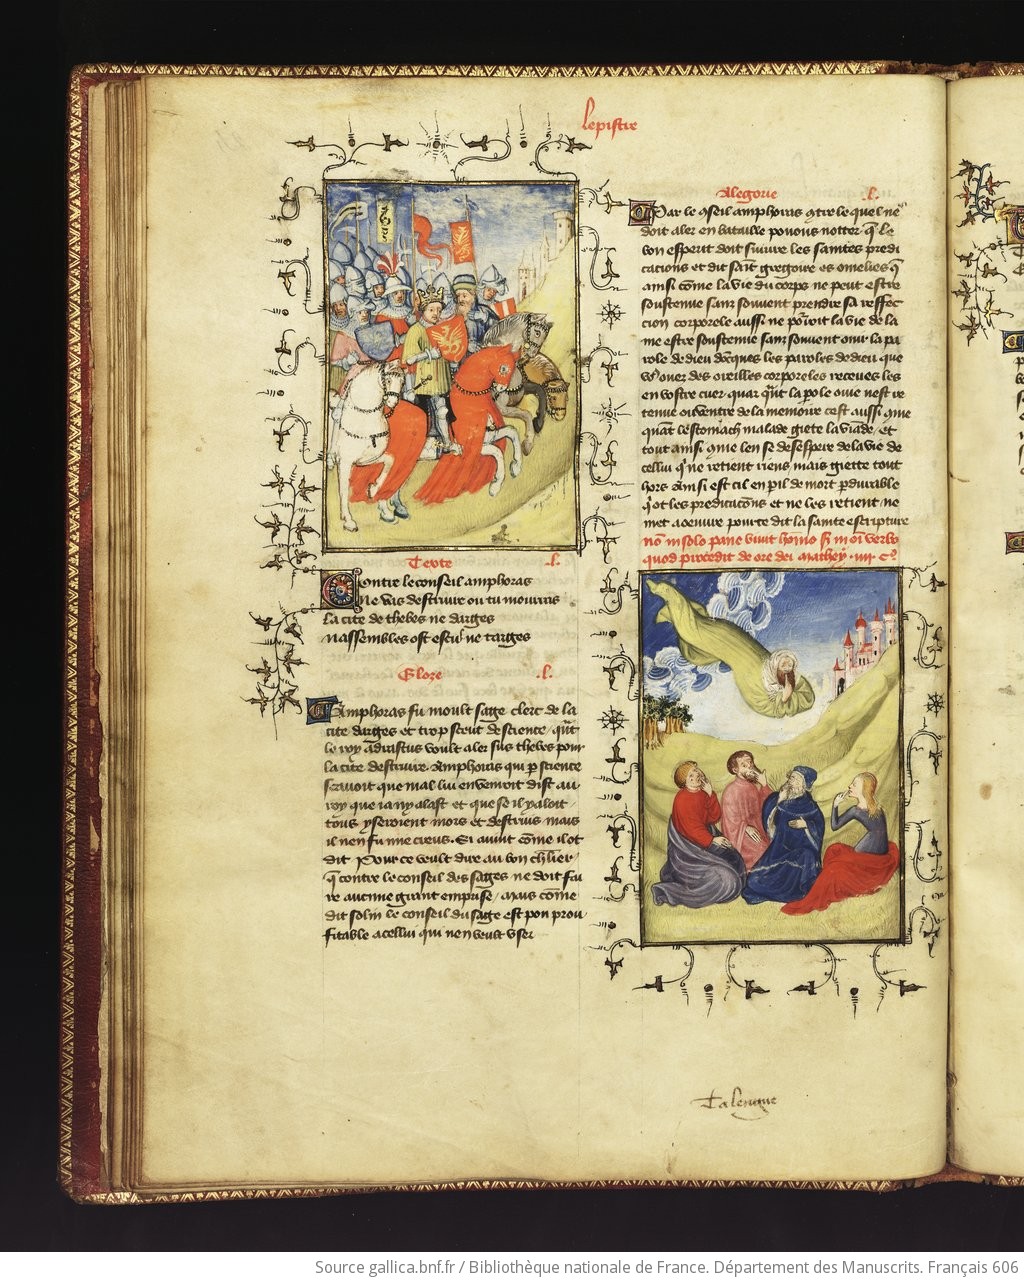 lepistre
Texte .l.
Contre le conseil amphoras
Ne vas destruire ou tu mourras
La cite de thebes ne darges
Nassembles ost escu ne targes
Glose .l.
Amphoras fu moult sage clerc de la
cite darges et trop sceut de science / qñt
le roy adrastus voult aler sus thebes pour
la cite destruire. Amphoras qui p science
scavoit que mal lui en venroit dist au
roy que ia ny alast et que se il y aloit /
tous y seroient mors et destruis mais
il nen fu mie creus. Si avint cõme il ot
dit Pour ce veult dire au bon chlĩer /
q̃ contre le conseil des sages ne doit fai
re aucune grant emprise / Mais cõme
dit solin le conseil du sage est pou prou
fitable a cellui qui nen veult user
Alegorie .l.
Par le ꝯseil amphoras ꝯtre le quel ne
doit aler en bataille pouons notter q̃ le
bon esperit doit suivre les saintes predi
cacions et dit saĩt gregoire es omelies q̃
ainsi cõme la vie du corps ne peut estre
soustenue sans souvent prendre sa reffec
cion corporele aussi ne põrroit la vie de la
me estre soustenue sans souvent ouir la pa
role de dieu docques les paroles de dieu que
vo⁹ ouez des oreilles corporeles receues les
en vostre cuer / quar qñt la pole ouie nest re
tenue ou ventre de la memoire cest aussi ꝯme
quãt lestomach malade giete la viãde / et
tout ainsi ꝯme len se desespere de la vie de
cellui q̃ ne retient riens mais giette tout
hors Ainsi est cil en pil de mort pdurable
q̃ ot les predicaciõns et ne les retient ne
met a oeuvre pour ce dit la sainte escripture
nõ in solo pane vivit homo si in oĩ verbo
quod procedit de ore dei Mathey .iiii. c°
Source gallica.bnf.fr / Bibliothèque nationale de France. Département des Manuscrits. Français 606